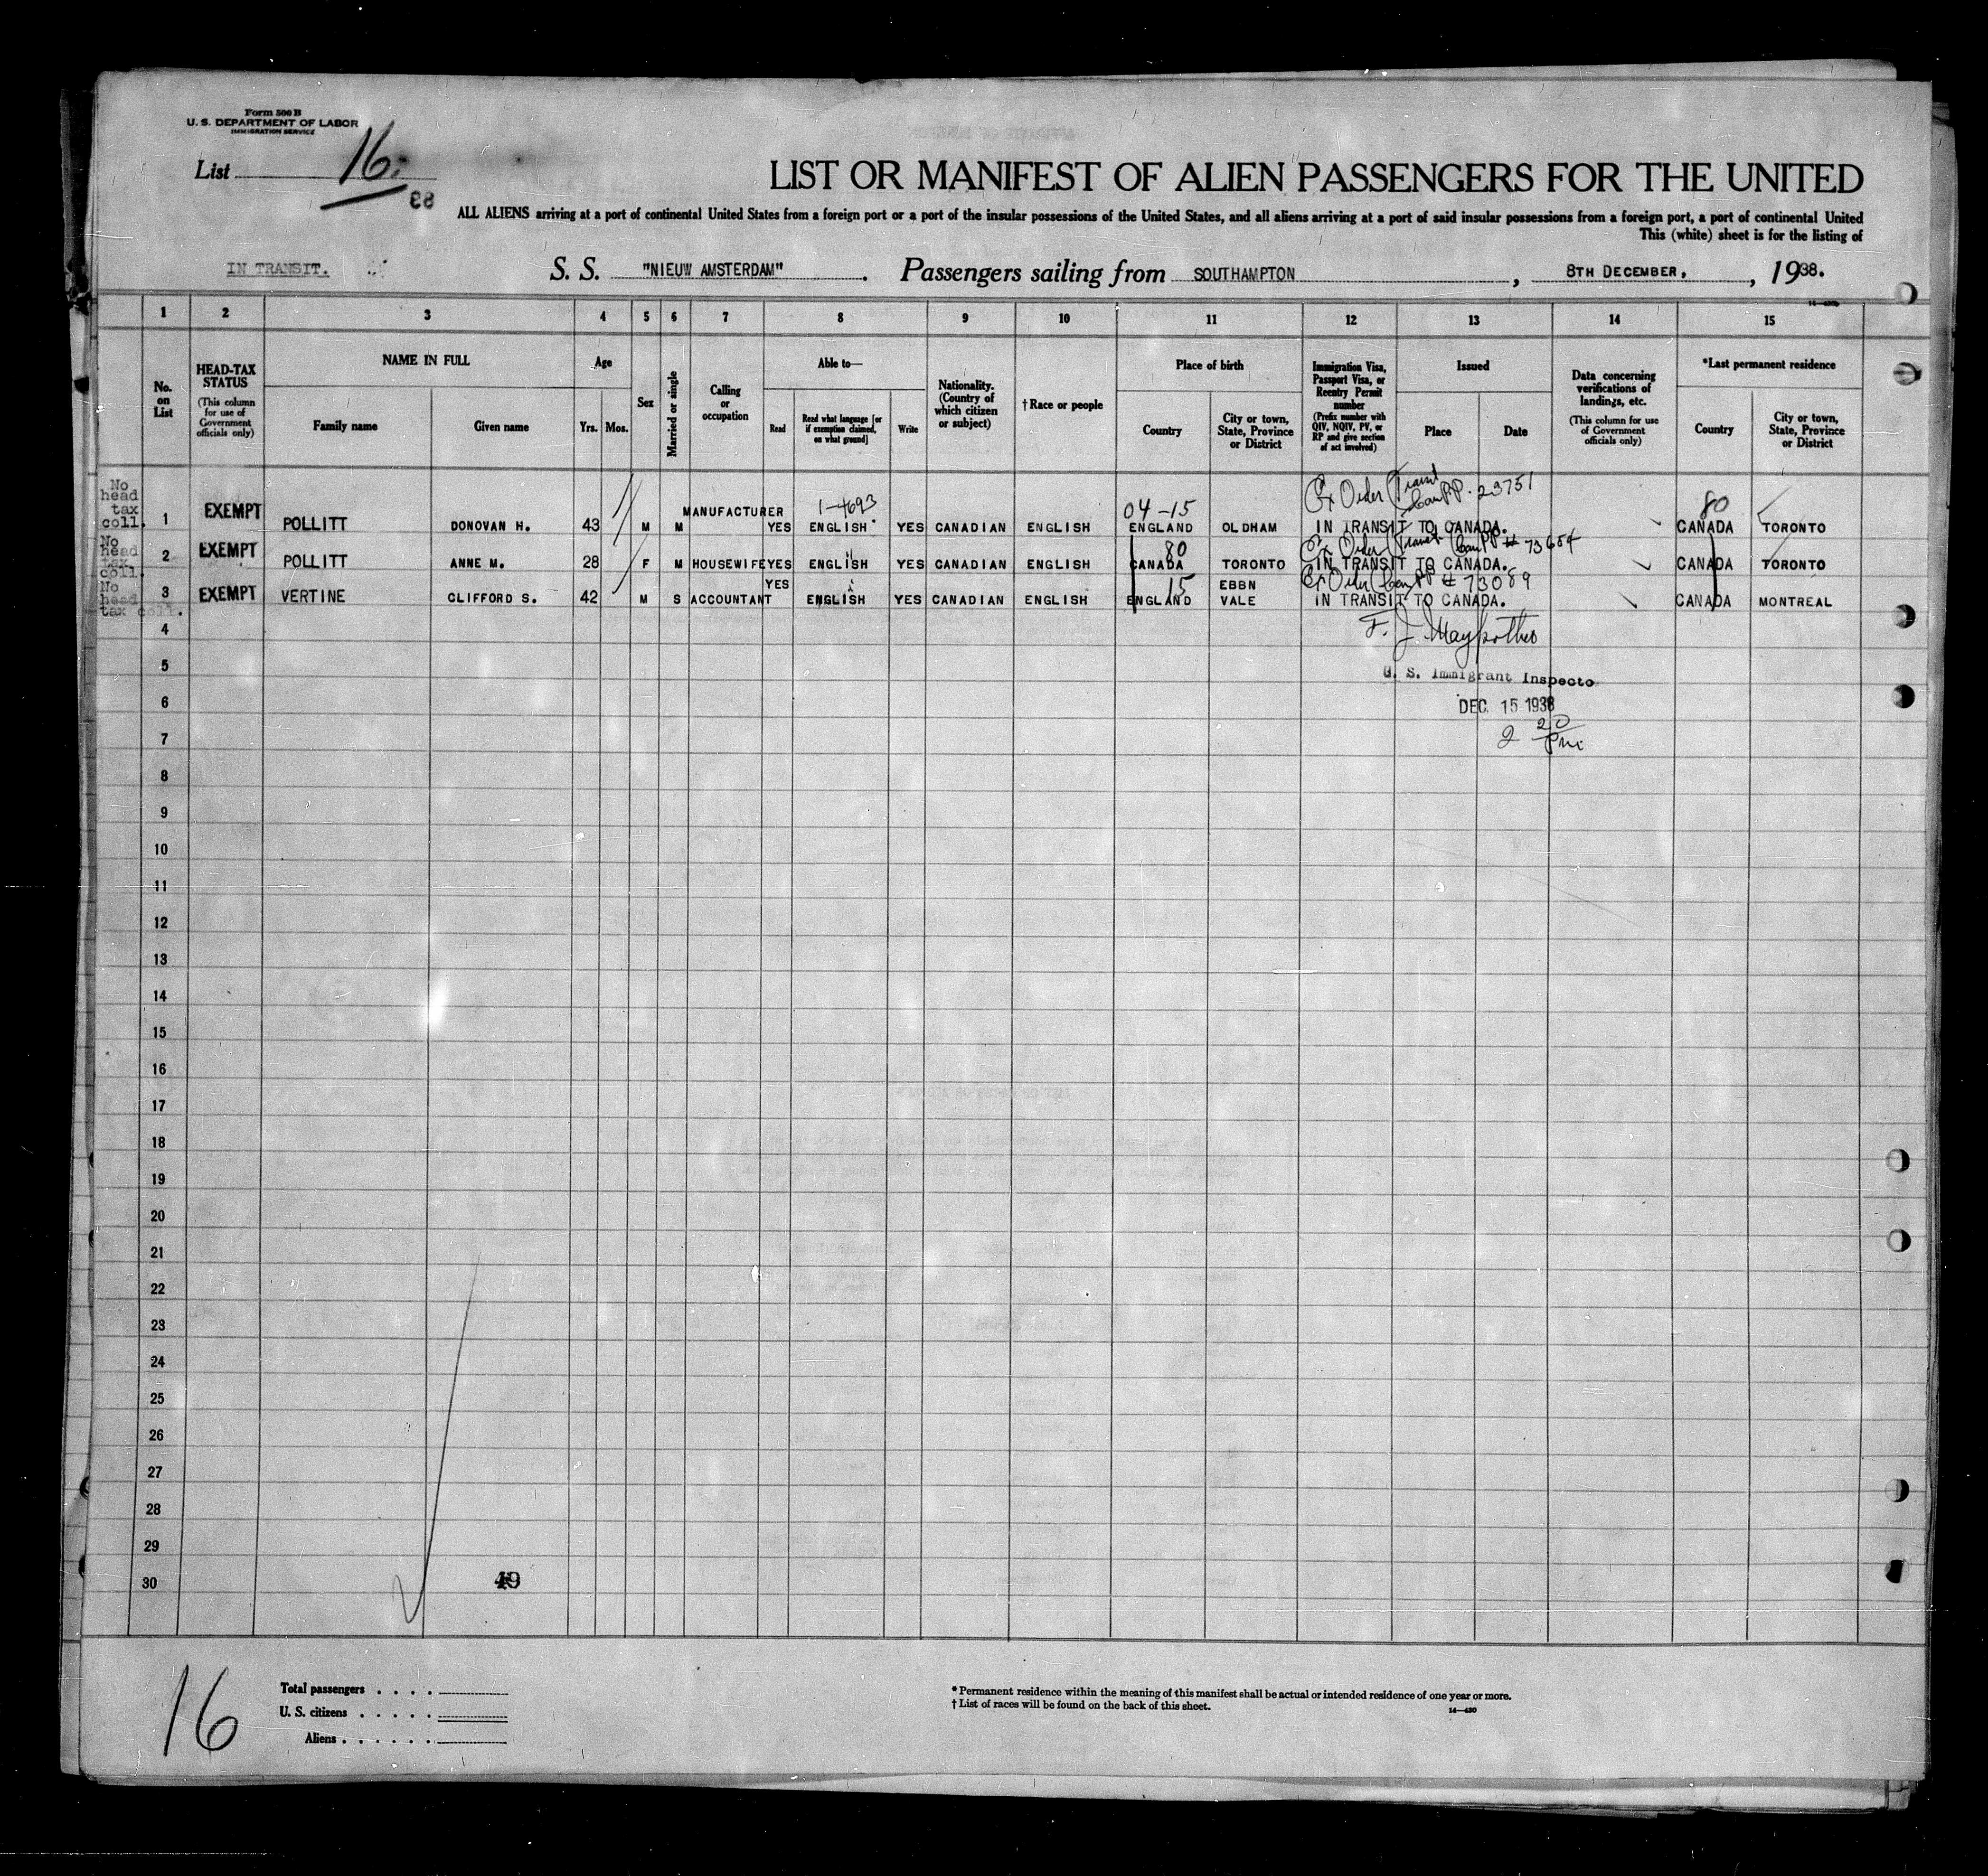 Form 500 B
U. S. DEPARTMENT OF LABOR
IMMIGRATION SERVICE
List 16.
88
LIST OR MANIFEST OF ALIEN PASSENGERS FOR THE UNITED
ALL ALIENS arriving at a port of continental United States from a foreign port or a port of the insular possessions of the United States, and all aliens arriving at a port of said insular possessions from a foreign port, a port of continental United
This (white) sheet is for the listing of
IN TRANSIT. S. S. "NIEUW AMSTERDAM". Passengers sailing from SOUTHAMPTON, 8TH DECEMBER, , 1938.
1 2 3 4 5 6 7 8 9 10 11 12 13 14 15
No. on List
HEAD-TAX STATUS
(This column for use of Government officials only)
NAME IN FULL
Family name
Given name
Age
Yrs. Mos.
Sex
Married or single
Calling or occupation
Able to—
Read
Read what language [or if exemption claimed, on what ground]
Write
Nationality. (Country of which citizen or subject)
† Race or people
Place of birth
Country
City or town, State, Province or District
Immigration Visa, Passport Visa, or Reentry Permit number
(Prefix number with QIV, NQIV, PV, or RP and give section of act involved)
Issued
Place
Date
Data concerning verifications of landings, etc.
(This column for use of Government officials only)
*Last permanent residence
Country
City or town, State, Province or District
Ex Order Transit Can PP. 23751
1-4693 04-15 80
No head tax coll. 1 EXEMPT POLLITT DONOVAN H. 43 M M MANUFACTURER YES ENGLISH YES CANADIAN ENGLISH ENGLAND OLDHAM IN TRANSIT TO CANADA. CANADA TORONTO
80 Ex Order Transit Can PP # 73654
No head tax coll. 2 EXEMPT POLLITT ANNE M. 28 F M HOUSEWIFE YES ENGLISH YES CANADIAN ENGLISH CANADA TORONTO IN TRANSIT TO CANADA. CANADA TORONTO
15 Ex Order Can PP # 73089
No head tax coll. 3 EXEMPT VERTINE CLIFFORD S. 42 M S ACCOUNTANT YES ENGLISH YES CANADIAN ENGLISH ENGLAND EBBN VALE IN TRANSIT TO CANADA. CANADA MONTREAL
4
F. J.
5
U. S. Immigrant Inspecto
6
DEC 15 1938
7
2 20 Pm
8
9
10
11
12
13
14
15
16
17
18
19
20
21
22
23
24
25
26
27
28
29
30
16
Total passengers . . . .
U. S. citizens . . . . .
Aliens . . . . . .
* Permanent residence within the meaning of this manifest shall be actual or intended residence of one year or more.
† List of races will be found on the back of this sheet.
14—430